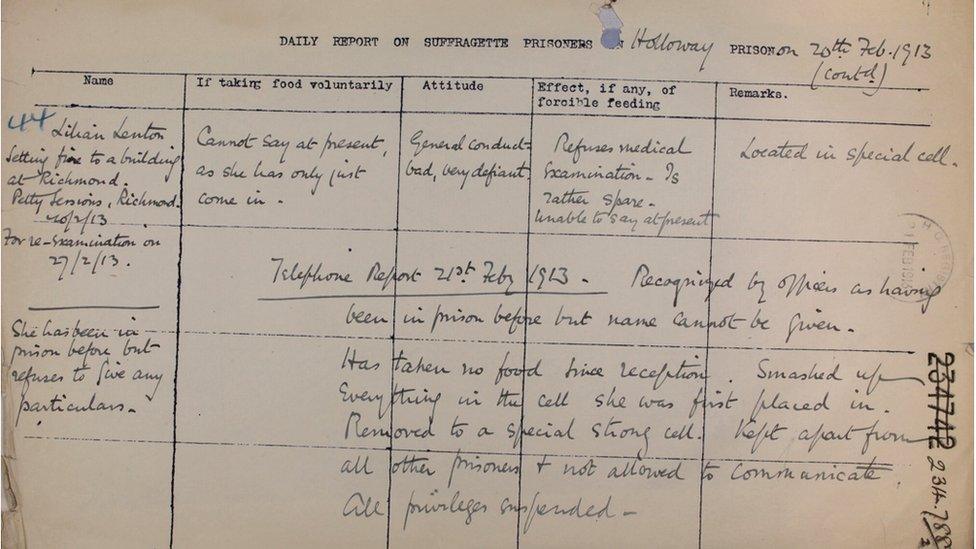 DAILY REPORT ON SUFFRAGETTE PRISONERS IN Holloway PRISON on 20th Feb. 1913
(contd)
Name
If taking food voluntarily
Attitude
Effect, if any, of
forcible feeding
Remarks.
44 Lilian Lenton
Setting fire to a building
at Richmond.
Petty Sessions, Richmond.
20/2/13
For re-examination on
27/2/13.
Cannot say at present,
as she has only just
come in.
General conduct
bad, very defiant.
Refuses medical
examination. Is
rather spare.
Unable to say at present
Located in special cell.
Telephone Report 21st Feby 1913. Recognized by officers as having
been in prison before but name cannot be given.
She has been in
prison before but
refuses to give any
particulars.
Has taken no food since reception. Smashed up
everything in the cell she was first placed in.
Removed to a special strong cell. Kept apart from
all other prisoners + not allowed to communicate.
All privileges suspended.
234742
234.788
2